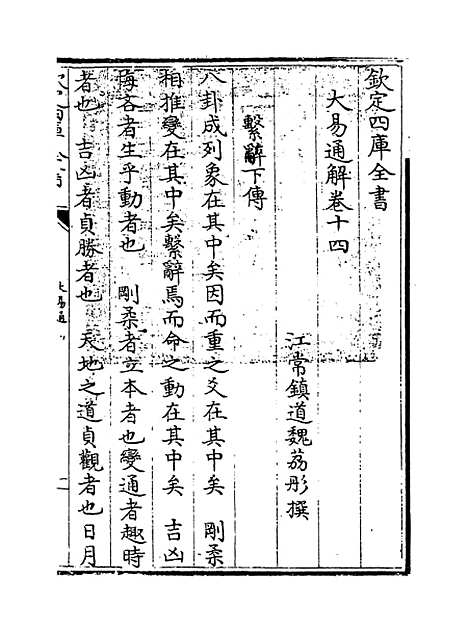 欽定四庫全書
大易通解卷十四
江常鎮道魏荔彤撰
繫辭下傳
八卦成列象在其中矣因而重之爻在其中矣 剛柔
相推變在其中矣繫辭焉而命之動在其中矣 吉凶
悔吝者生乎動者也 剛柔者立本者也變通者趣時
者也 吉凶者貞勝者也 天地之道貞觀者也日月
大易通
一